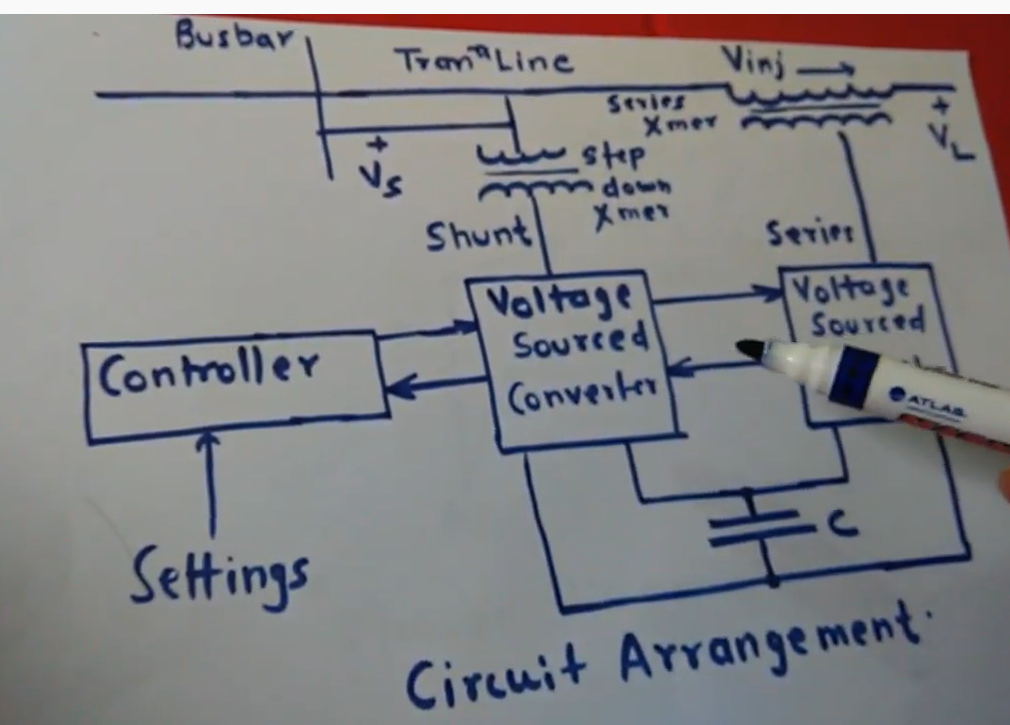 Busbar
Tranⁿ Line
Vinj
Series
Xmer
+
VL
+
Vs
step
down
Xmer
Shunt
Series
Voltage
Sourced
Converter
Voltage
Sourced
Controller
ATLAS
C
Settings
Circuit Arrangement.